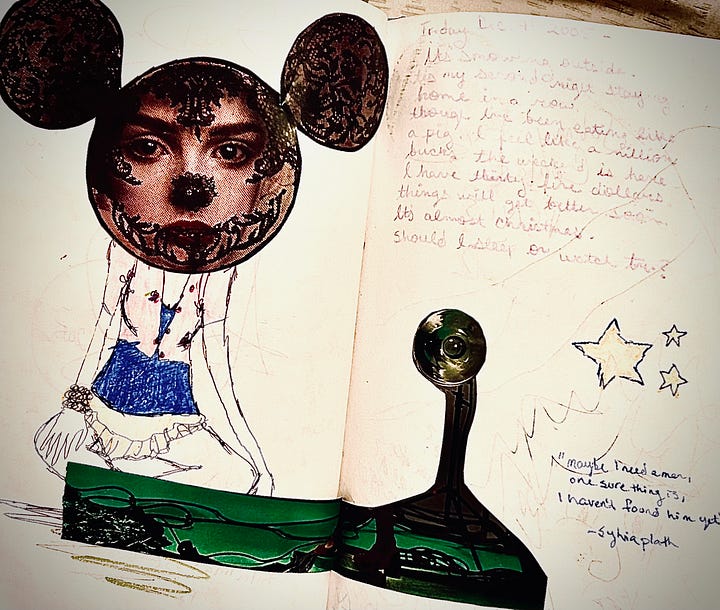 Friday Dec. 9 2005
Its snowing outside.
Its my second night staying
home in a row.
though Ive been eating like
a pig. I feel like a million
bucks. the weeke'd is here
I have thirty-five dollars
things will get better soon.
Its almost christmas.
should I sleep or watch
"maybe I need a man,
one sure thing is,
I haven't found him yet"
~Sylvia plath